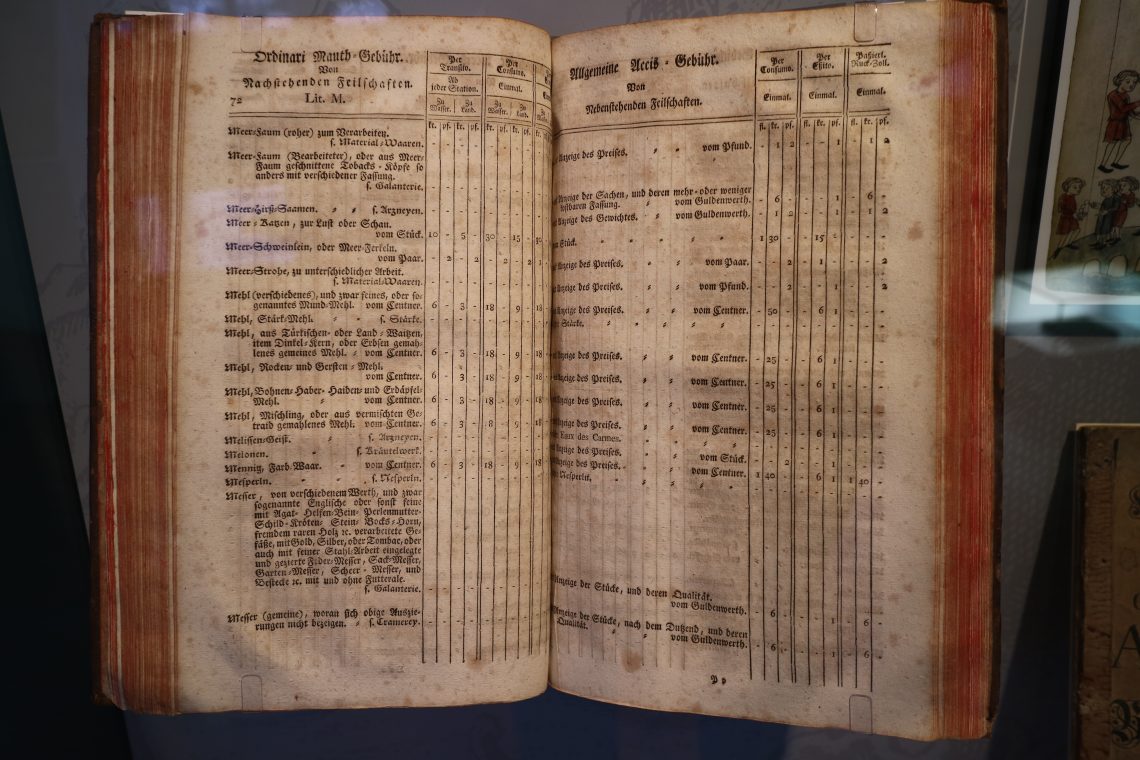 Ordinari Mauth-Gebühr.
Von
Nachstehenden Feilschaften.
72 Lit. M.
Per Transito.
Ab jeder Station.
Zu Wasser. Zu Land.
kr. pf. kr. pf.
Per Consumo.
Einmal.
Zu Wasser. Zu Land.
kr. pf. kr. pf.
Meer-Faum (roher) zum Verarbeiten.
s. Material-Waaren. - - - - - - - -
Meer-Faum (Bearbeiteter), oder aus Meer-
Faum geschnittene Tobacks-Köpfe so
anders mit verschiedener Fassung.
s. Galanterie. - - - - - - - -
Meer-Hirß-Saamen. s. Arzneyen. - - - - - - - -
Meer-Katzen, zur Lust oder Schau.
vom Stück. 10 - 5 - 30 - 15 - 30
Meer-Schweinlein, oder Meer-Ferkeln.
vom Paar. - 2 - 2 - 2 - 2
Meer-Strohe, zu unterschiedlicher Arbeit.
s. Material-Waaren. - - - - - - - -
Mehl (verschiedenes), und zwar feines, oder so-
genanntes Mund-Mehl. vom Centner. 6 - 3 - 18 - 9 - 18
Mehl, Stärk-Mehl. s. Stärke. - - - - - - - -
Mehl, aus Türkischen- oder Land-Waitzen,
item Dinkel-Kern, oder Erbsen gemah-
lenes gemeines Mehl. vom Centner. 6 - 3 - 18 - 9 - 18
Mehl, Rocken- und Gersten-Mehl.
vom Centner. 6 - 3 - 18 - 9 - 18
Mehl, Bohnen- Haber- Haiden- und Erdäpfel-
Mehl. vom Centner. 6 - 3 - 18 - 9 - 18
Mehl, Mischling, oder aus vermischten Ge-
traid gemahlenes Mehl. vom Centner. 6 - 3 - 18 - 9 - 18
Melissen-Geist. s. Arzneyen. - - - - - - - -
Melonen. s. Kräutelwerk. - - - - - - - -
Mennig, Farb-Waar. vom Centner. 6 - 3 - 18 - 9 - 18
Mesperln. s. Nesperln. - - - - - - - -
Messer, von verschiedenem Werth, und zwar
sogenannte Englische oder sonst feine
mit Agat- Helfen-Bein- Perlenmutter-
Schild-Kröten- Stein- Bocks-Horn,
fremdem raren Holz ꝛc. verarbeitete Ge-
fäße, mit Gold, Silber, oder Tombac, oder
auch mit feiner Stahl-Arbeit eingelegte
und gezierte Feder-Messer, Sack-Messer,
Garten-Messer, Scheer-Messer, und
Bestecke ꝛc. mit und ohne Futterale.
s. Galanterie. - - - - - - - -
Messer (gemeine), woran sich obige Auszie-
rungen nicht bezeigen. s. Cramerey. - - - - - - - -
Allgemeine Accis-Gebühr.
Von
Nebenstehenden Feilschaften.
Per Consumo.
Einmal.
fl. kr. pf.
Per Eßito.
Einmal.
fl. kr. pf.
Paßierl. Ruck-Zoll.
Einmal.
fl. kr. pf.
Anzeige des Preises. vom Pfund. - 1 2 - - 1 - 1 2
Anzeige der Sachen, und deren mehr- oder weniger
kostbaren Fassung. vom Guldenwerth. - 6 - - 1 - - 6 -
Anzeige des Gewichtes. vom Guldenwerth. - 1 2 - - 1 - 1 2
Stück. 1 30 - - 15 - - - -
Anzeige des Preises. vom Paar. - - 2 - - 1 - - 2
Anzeige des Preises. vom Pfund. - - 2 - - 1 - - 2
Anzeige des Preises. vom Centner. - 50 - - 6 1 - - -
Stärke.
Anzeige des Preises. vom Centner. - 25 - - 6 1 - - -
Anzeige des Preises. vom Centner. - 25 - - 6 1 - - -
Anzeige des Preises. vom Centner. - 25 - - 6 1 - - -
Anzeige des Preises. vom Centner. - 25 - - 6 1 - - -
Eaux des Carmes.
Anzeige des Preises. vom Stück. - - 2 - - 1 - - -
Anzeige des Preises. vom Centner. 1 40 - - 6 1 1 40 -
Nesperln.
Anzeige der Stücke, und deren Qualität.
vom Guldenwerth. - 6 - - - 1 - 6 -
Anzeige der Stücke, nach dem Dutzend, und deren
Qualität. vom Guldenwerth. - 6 - - - 1 - 6 -
P p